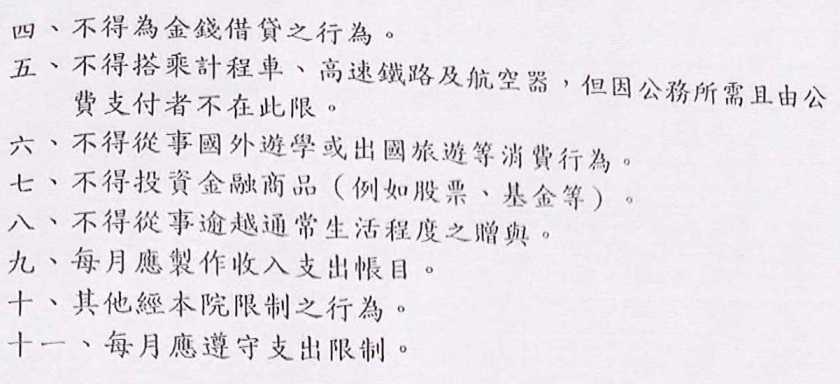 四、不得為金錢借貸之行為。
五、不得搭乘計程車、高速鐵路及航空器，但因公務所需且由公
費支付者不在此限。
六、不得從事國外遊學或出國旅遊等消費行為。
七、不得投資金融商品（例如股票、基金等）。
八、不得從事逾越通常生活程度之贈與。
九、每月應製作收入支出帳目。
十、其他經本院限制之行為。
十一、每月應遵守支出限制。